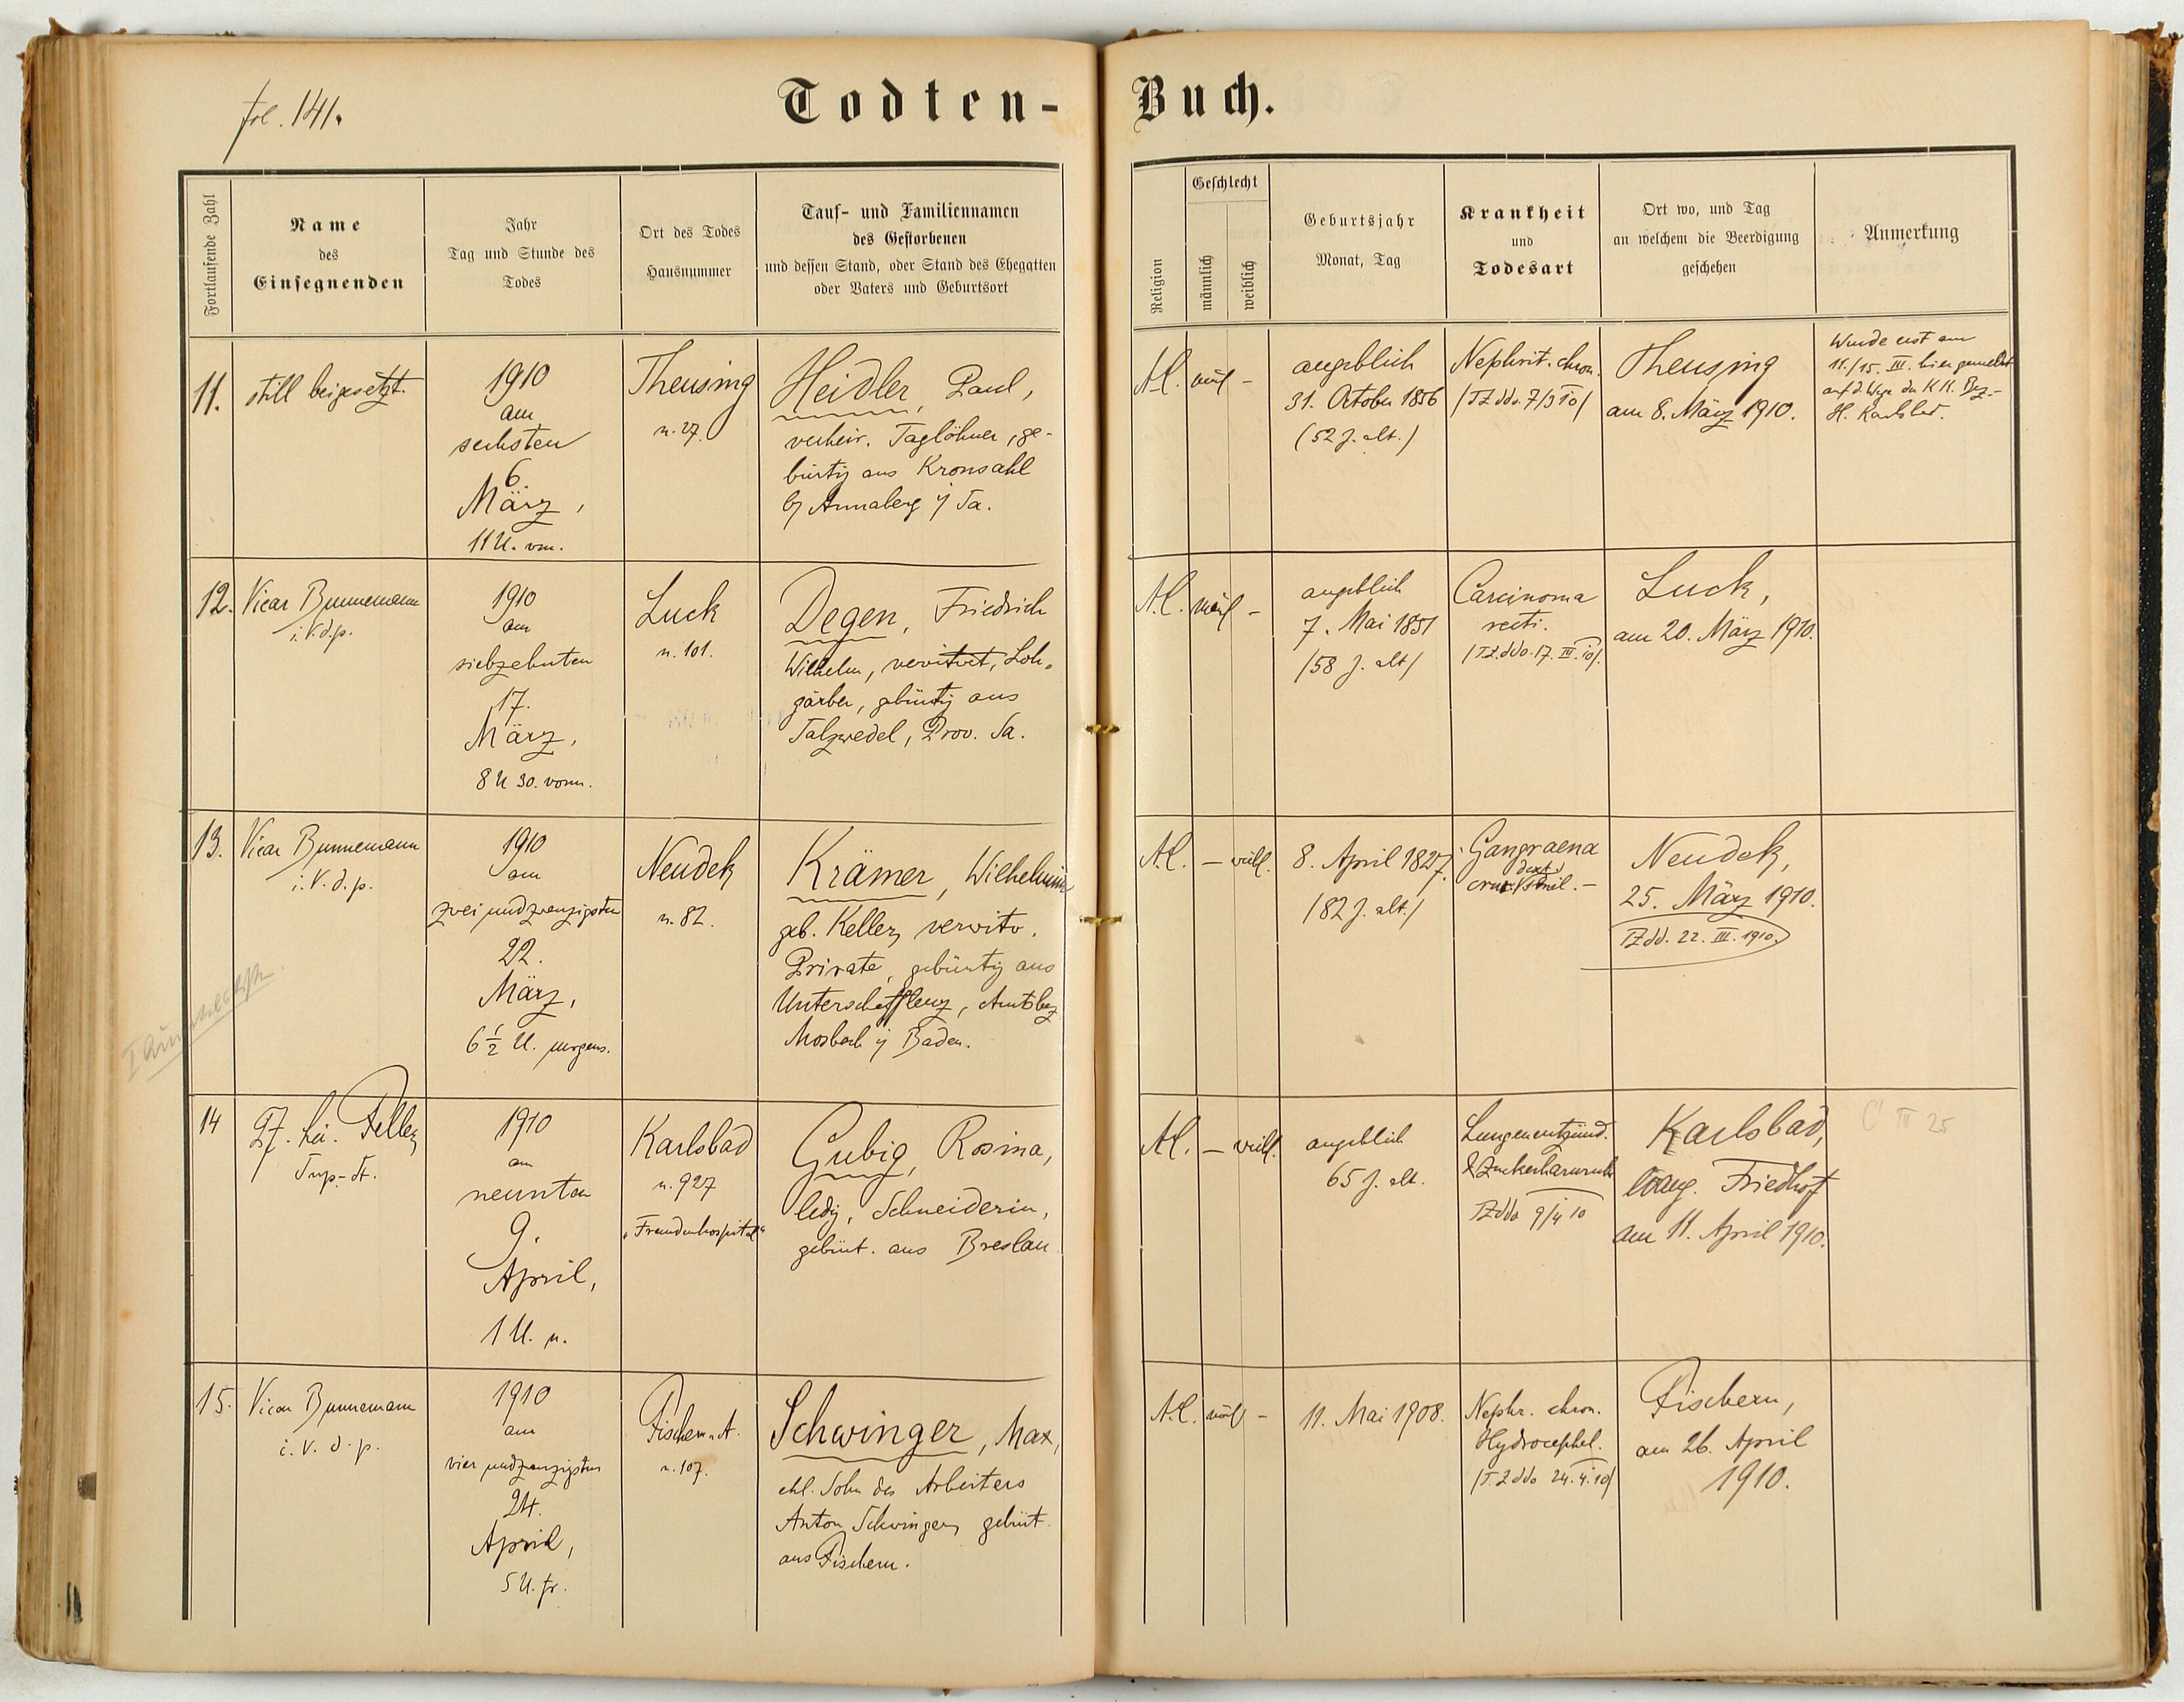 fol. 141.
Todten-Buch.
Fortlaufende Zahl
Name
des
Einsegnenden
Jahr
Tag und Stunde des
Todes
Ort des Todes
Hausnummer
Tauf- und Familiennamen
des Gestorbenen
und dessen Stand, oder Stand des Ehegatten
oder Vaters und Geburtsort
Religion
Geschlecht
männlich
weiblich
Geburtsjahr
Monat, Tag
Krankheit
und
Todesart
Ort wo, und Tag
an welchem die Beerdigung
geschehen
Anmerkung
11.
still beigesetzt.
1910
am
sechsten
6.
März,
11 U. vm.
Theusing
n. 27.
Heidler, Paul,
verheir. Taglöhner, ge-
bürtig aus Kronsahl
b/ Annaberg i/ Sa.
A.C.
mäl -
angeblich
31. October 1856
(52 J. alt.)
Nephrit. chron.
/TZ ddo. 7/3 10/
Theusing
am 8. März 1910.
Wurde erst am
11./15. III. hier gemeldet
auf d. Wege der K.K. Bez.-
H. Karlsbd.
12.
Vicar Bunnemann
i. V. d. p.
1910
am
siebzehnten
17.
März,
8 U 30. vorm.
Luck
n. 101.
Degen, Friedrich
Wilhelm, verwitwet, Loh-
gärber, gebürtig aus
Salzwedel, Prov. Sa.
A.C.
mäl -
angeblich
7. Mai 1851
/58 J. alt/
Carcinoma
recti.
/TZ. ddo. 17. III. 10/.
Luck,
am 20. März 1910.
13.
Vicar Bunnemann
i. V. d. p.
1910
am
zweiundzwanzigsten
22.
März,
6 1/2 U. morgens.
Neudek
n. 82.
Krämer, Wilhelmine
geb. Keller, verwitw.
Private, gebürtig aus
Unterschefflenz, Amtsbez
Mosbach i/ Baden.
A.C.
- weibl.
8. April 1827.
/82 J. alt./
Gangraena
dext.
senil. -
Neudek,
25. März 1910.
TZ dd. 22. III. 1910.
14
Pf. Feller,
1910
am
neunten
9.
April,
1 U. n.
Karlsbad
n. 927
"Fremdenhospital"
Gubig, Rosina,
ledig, Schneiderin,
gebürt. aus Breslau
A.C.
- weibl.
angeblich
65 J. alt.
Lungenentzünd.
& Zuckerharnruhr
TZ ddo 9/4 10
Karlsbad,
evang. Friedhof
am 11. April 1910.
C III 25
15.
Vicar Bunnemann
i. V. d. p.
1910
am
vierundzwanzigsten
24.
April,
5 U. fr.
Fischern A.
n. 107.
Schwinger, Max,
ehl. Sohn des Arbeiters
Anton Schwinger, gebürt.
aus Fischern.
A.C.
mäl -
11. Mai 1908.
Nephr. chron.
Hydrocephal.
/T.Z ddo 24. 4. 10/
Fischern,
am 26. April
1910.